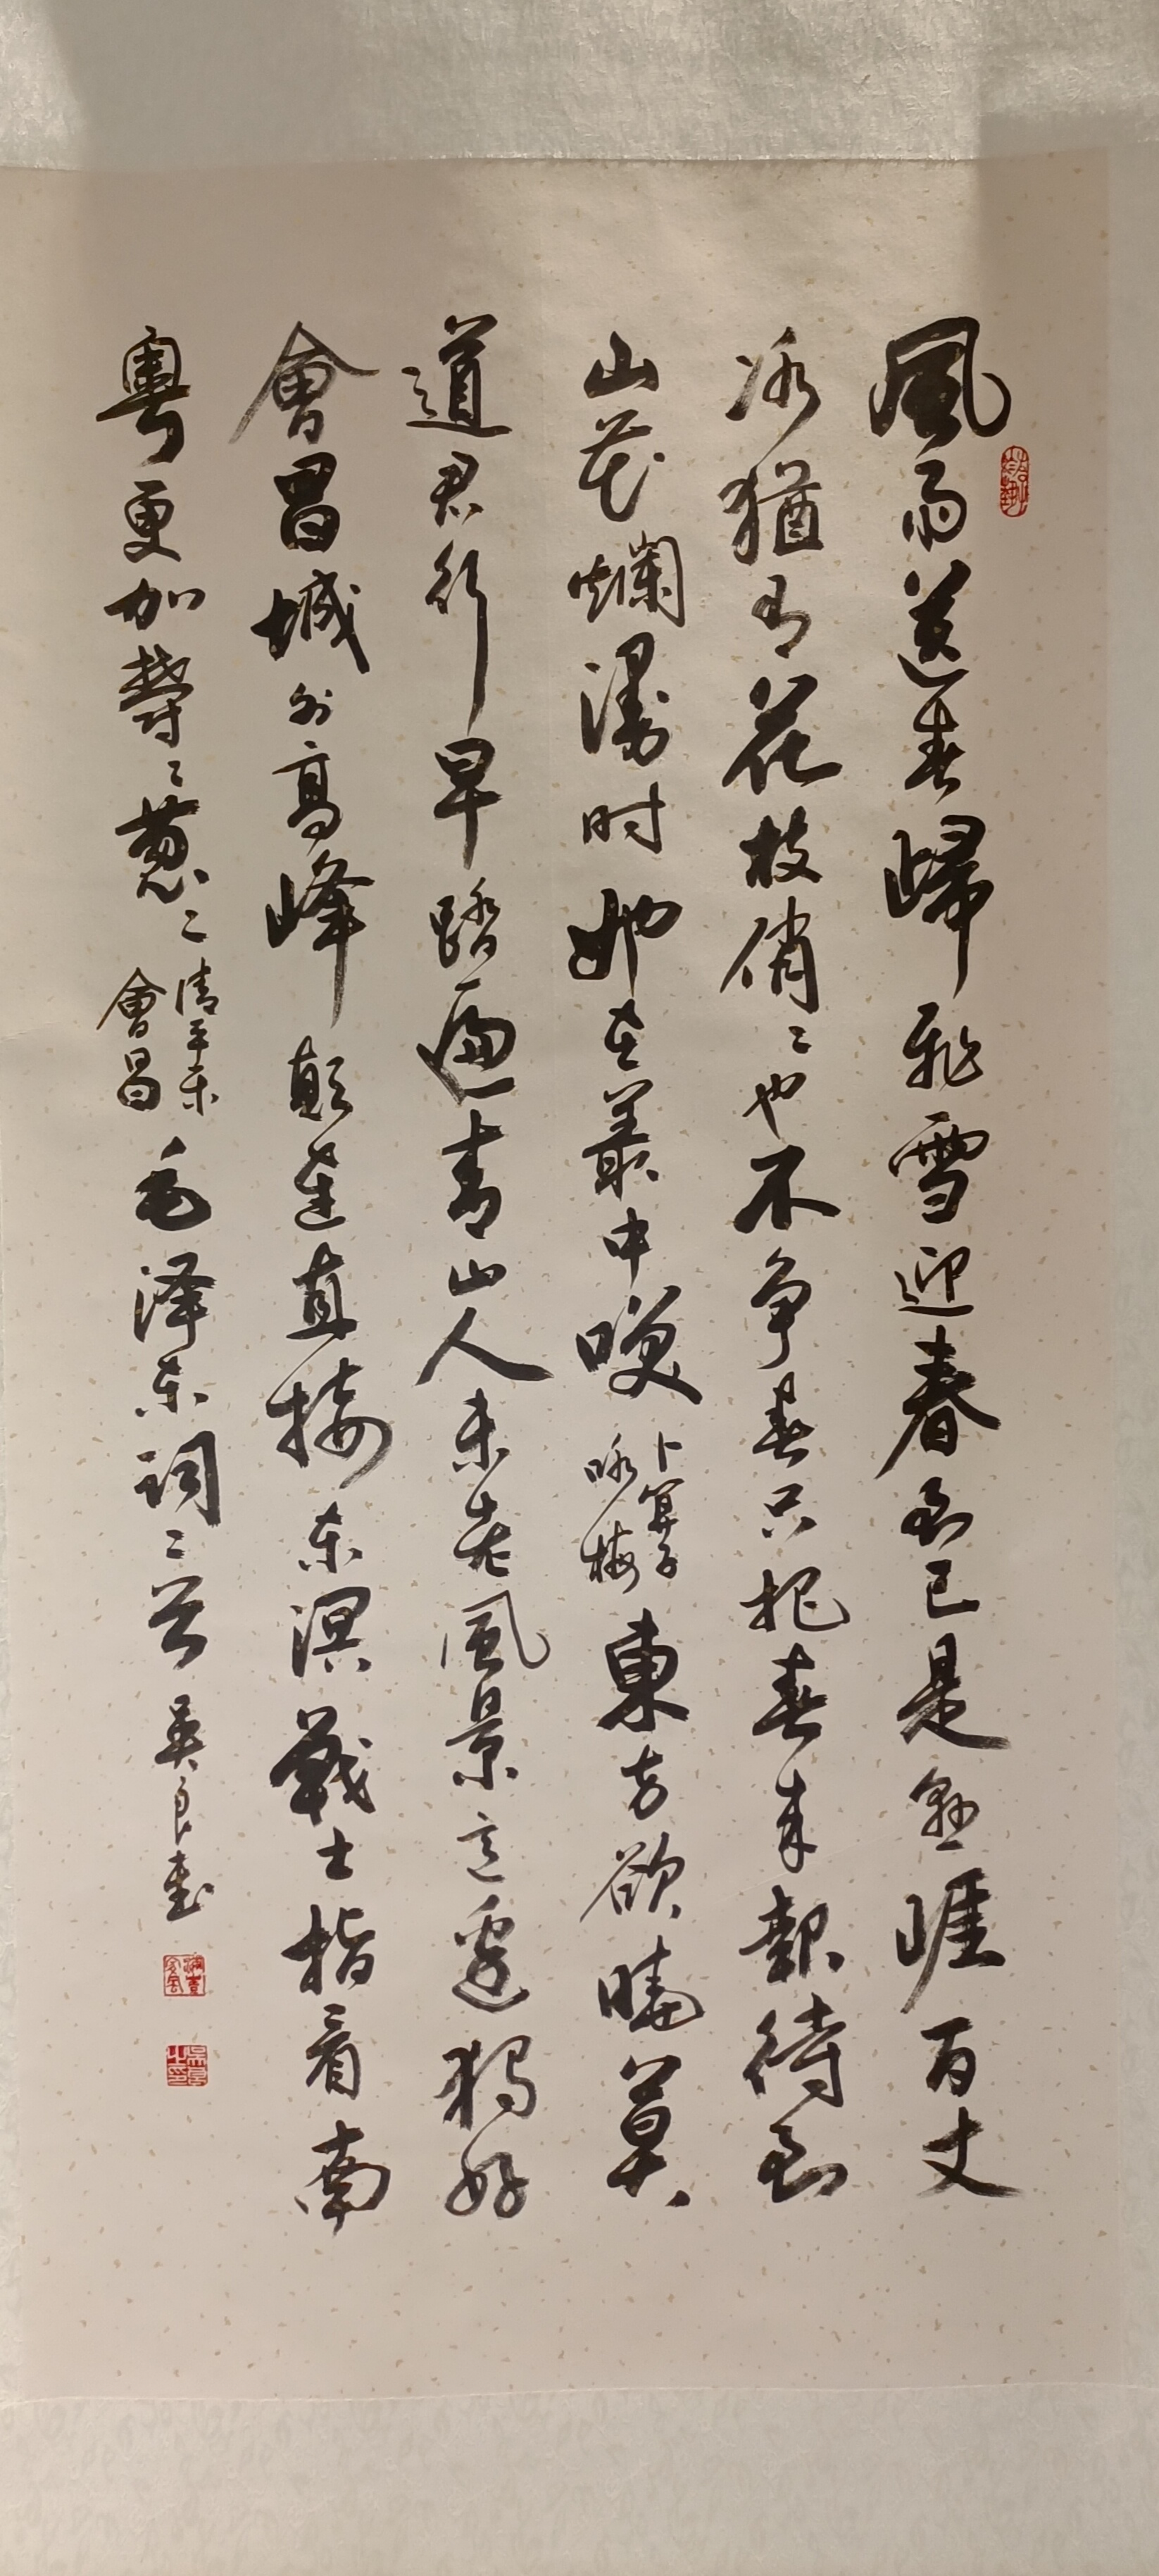 風雨送春歸飛雪迎春到已是懸崖百丈
冰猶有花枝俏〻也不争春只把春來報待到
山花爛漫时她在叢中咲
卜算子
咏梅
東方欲曉莫
道君行早踏遍青山人未老風景這邊獨好
會昌城外高峰顛連直接东溟戰士指看南
粤更加鬱〻蔥〻
清平乐
會昌
毛泽东词二首
吴良書